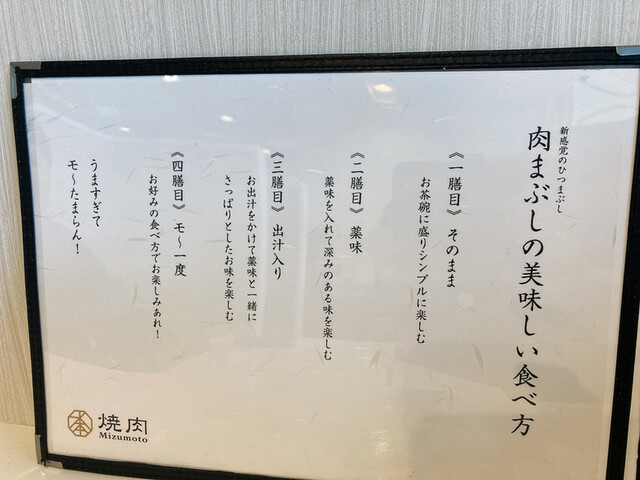 新感覚のひつまぶし
肉まぶしの美味しい食べ方
《一膳目》そのまま
お茶碗に盛りシンプルに楽しむ
《二膳目》薬味
薬味を入れて深みのある味を楽しむ
《三膳目》出汁入り
お出汁をかけて薬味と一緒に
さっぱりとしたお味を楽しむ
《四膳目》モ〜一度
お好みの食べ方でお楽しみあれ！
うますぎて
モ〜たまらん！
本 焼肉
Mizumoto